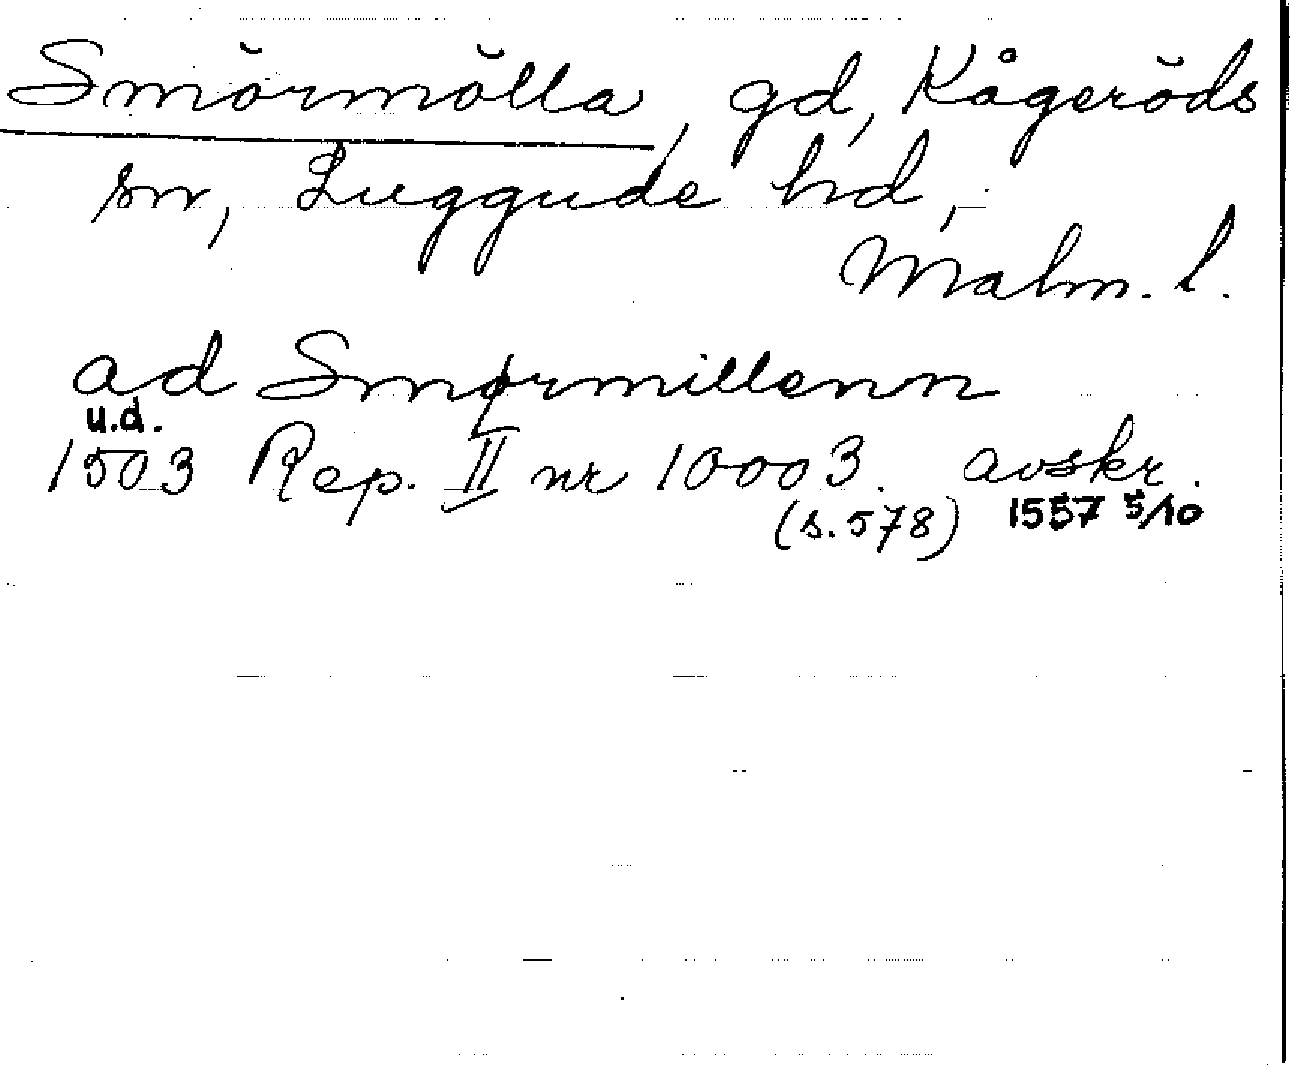 Smörmölla, gd, Kågeröds
sn, Luggude hd,
Malm. l.
ad Smørmillenn
u.d.
1503 Rep. II nr 10003. avskr.
(s. 578) 1557 5/10